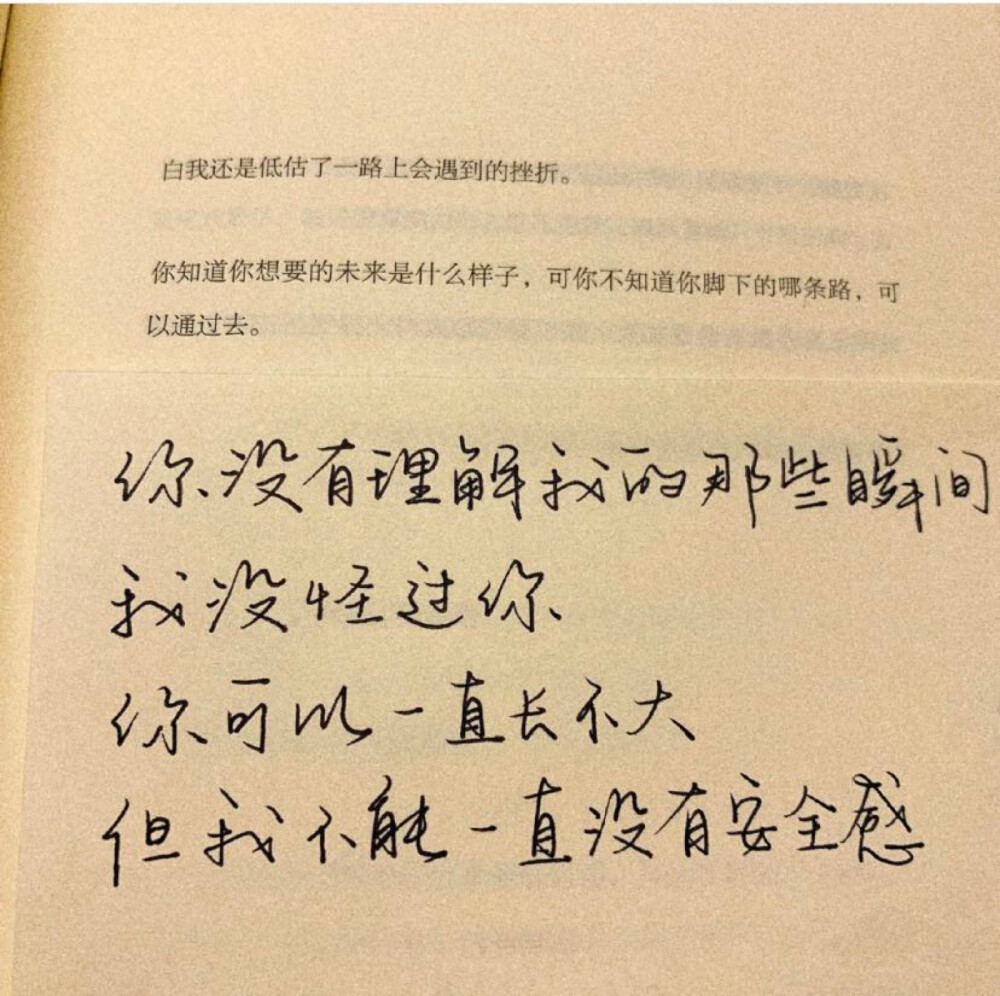 白我还是低估了一路上会遇到的挫折。
你知道你想要的未来是什么样子，可你不知道你脚下的哪条路，可
以通过去。
你没有理解我的那些瞬间
我没怪过你
你可以一直长不大
但我不能一直没有安全感